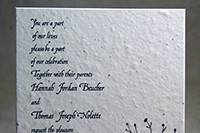 You are a part
of our lives
please be a part
of our celebration
Together with their parents
Hannah Jordan Beucher
and
Thomas Joseph Nolette
request the pleasure